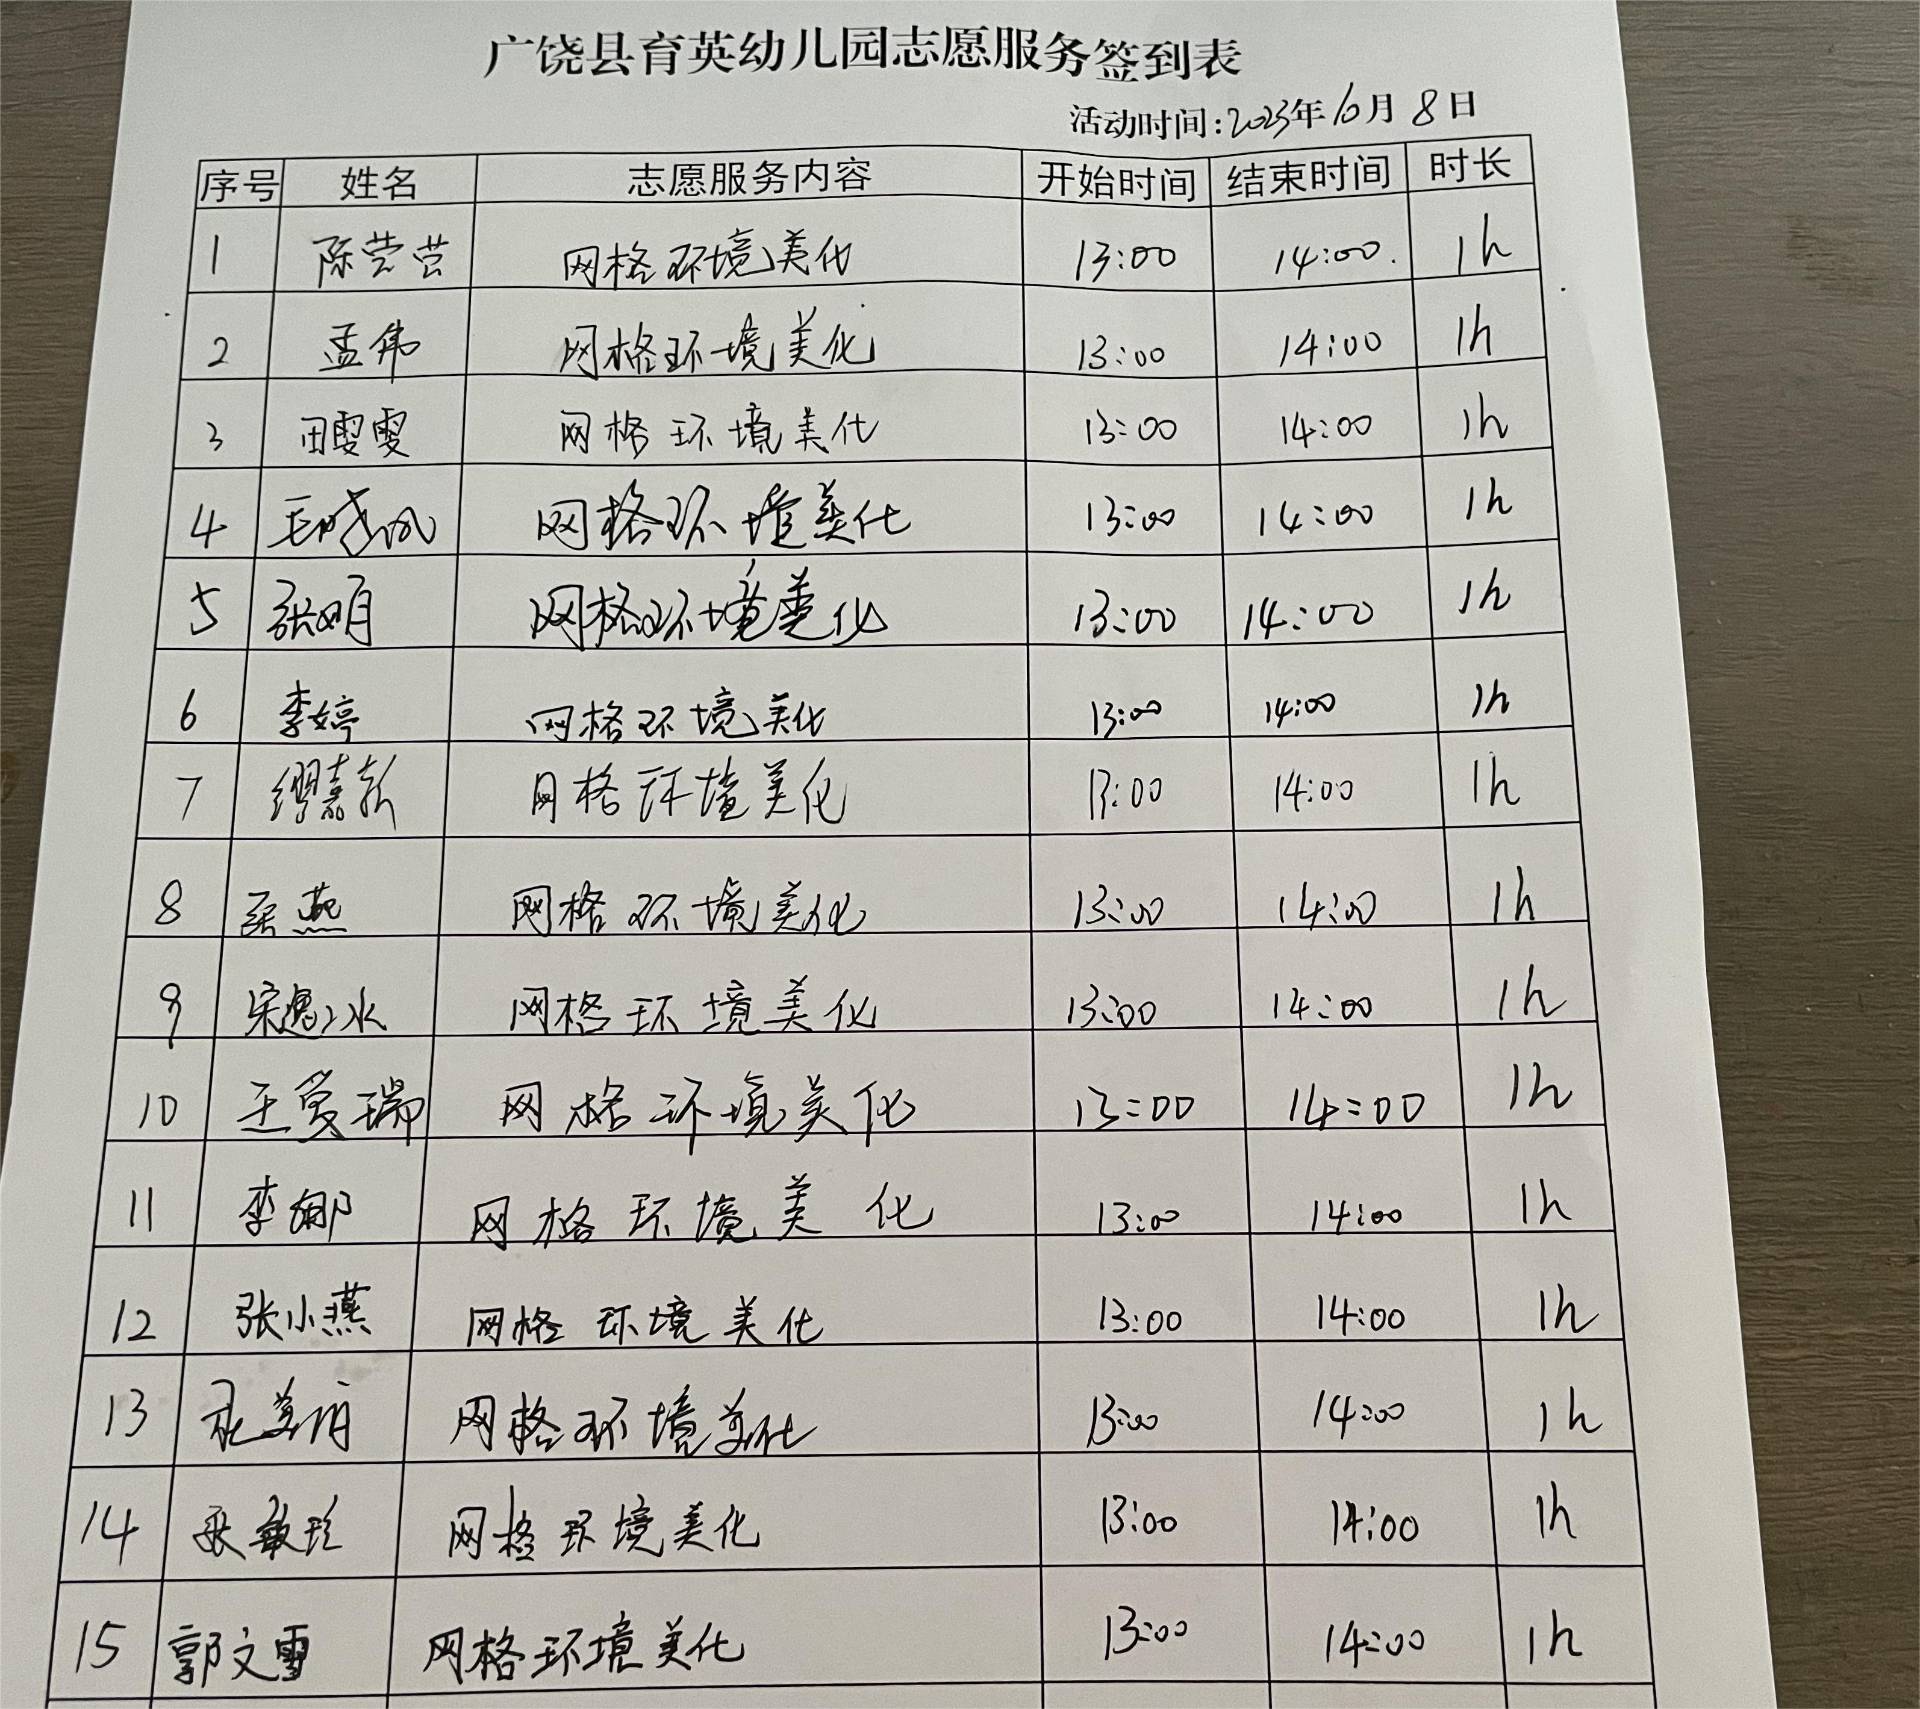 广饶县育英幼儿园志愿服务签到表
活动时间:2023年10月8日
序号 姓名 志愿服务内容 开始时间 结束时间 时长
1 陈莹莹 网格环境美化 13:00 14:00 1h
2 孟伟 网格环境美化 13:00 14:00 1h
3 田雯雯 网格环境美化 13:00 14:00 1h
4 网格环境美化 13:00 14:00 1h
5 张明 网格环境美化 13:00 14:00 1h
6 李婷 网格环境美化 13:00 14:00 1h
7 网格环境美化 13:00 14:00 1h
8 网格环境美化 13:00 14:00 1h
9 网格环境美化 13:00 14:00 1h
10 网格环境美化 13:00 14:00 1h
11 李娜 网格环境美化 13:00 14:00 1h
12 张小燕 网格环境美化 13:00 14:00 1h
13 网格环境美化 13:00 14:00 1h
14 网格环境美化 13:00 14:00 1h
15 郭文雪 网格环境美化 13:00 14:00 1h